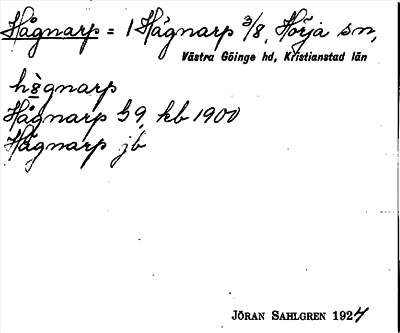 Hågnarp = 1 Hågnarp 3/8, Hörja sn,
Västra Göinge hd, Kristianstad län
hògnarp
Hågnarp G9, kb 1900
Hågnarp jb
JÖRAN SAHLGREN 1924